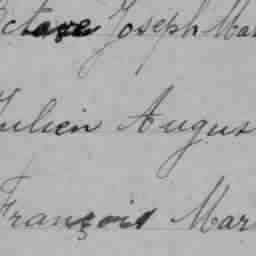 Octave Joseph Mar
Julien Augus
François Mar